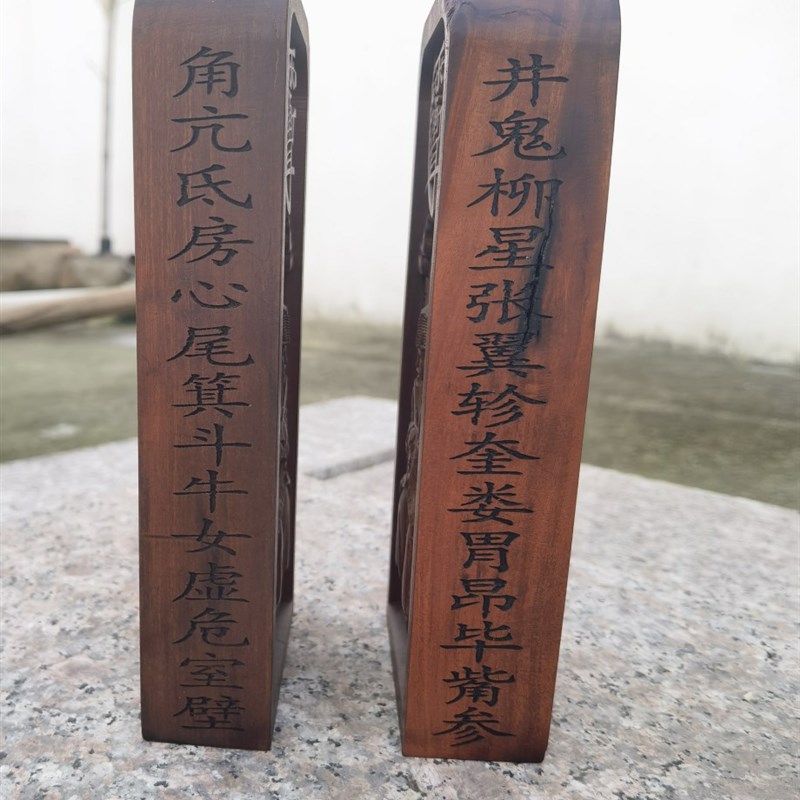 角亢氐房心尾箕斗牛女虚危室壁
井鬼柳星张翼轸奎娄胃昴毕觜参